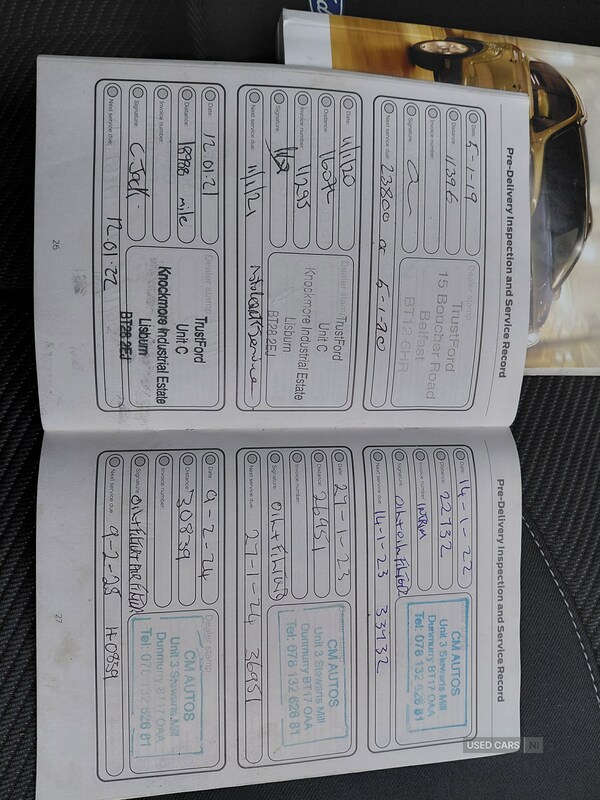 Pre-Delivery Inspection and Service Record
Date: 5-1-19
Distance: 11396
Invoice number:
Signature:
Next service due: 23800 or 5-1-20
Dealer stamp
TrustFord
15 Boucher Road
Belfast
BT12 6HR
Date: 11/1/20
Distance:
Invoice number:
Signature:
Next service due: 11/1/21
Dealer stamp
TrustFord
Unit C
Knockmore Industrial Estate
Lisburn
BT28 2EJ
Date: 12.01.21
Distance: 18988 mile
Invoice number:
Signature: C. Jack.
Next service due: 12.01.22
TrustFord
Unit C
Knockmore Industrial Estate
Lisburn
BT28 2EJ
26
Pre-Delivery Inspection and Service Record
Date: 14-1-22
Distance: 22732
Invoice number:
Signature: OIL+OIL FILTER
Next service due: 14-1-23 33932
CM AUTOS
Unit 3 Stewarts Mill
Dunmurry BT17 OAA
Tel: 078 132 626 81
Date: 27-1-23
Distance: 26951
Invoice number:
Signature: OIL+FILTER
Next service due: 27-1-24 36951
CM AUTOS
Unit 3 Stewarts Mill
Dunmurry BT17 OAA
Tel: 078 132 626 81
Date: 9-2-24
Distance: 30839
Invoice number:
Signature: OIL+FILTER AIR FILTER
Next service due: 9-2-25 40839
Dealer stamp
CM AUTOS
Unit 3 Stewarts Mill
Dunmurry BT17 OAA
Tel: 078 132 626 81
27
USED CARS NI